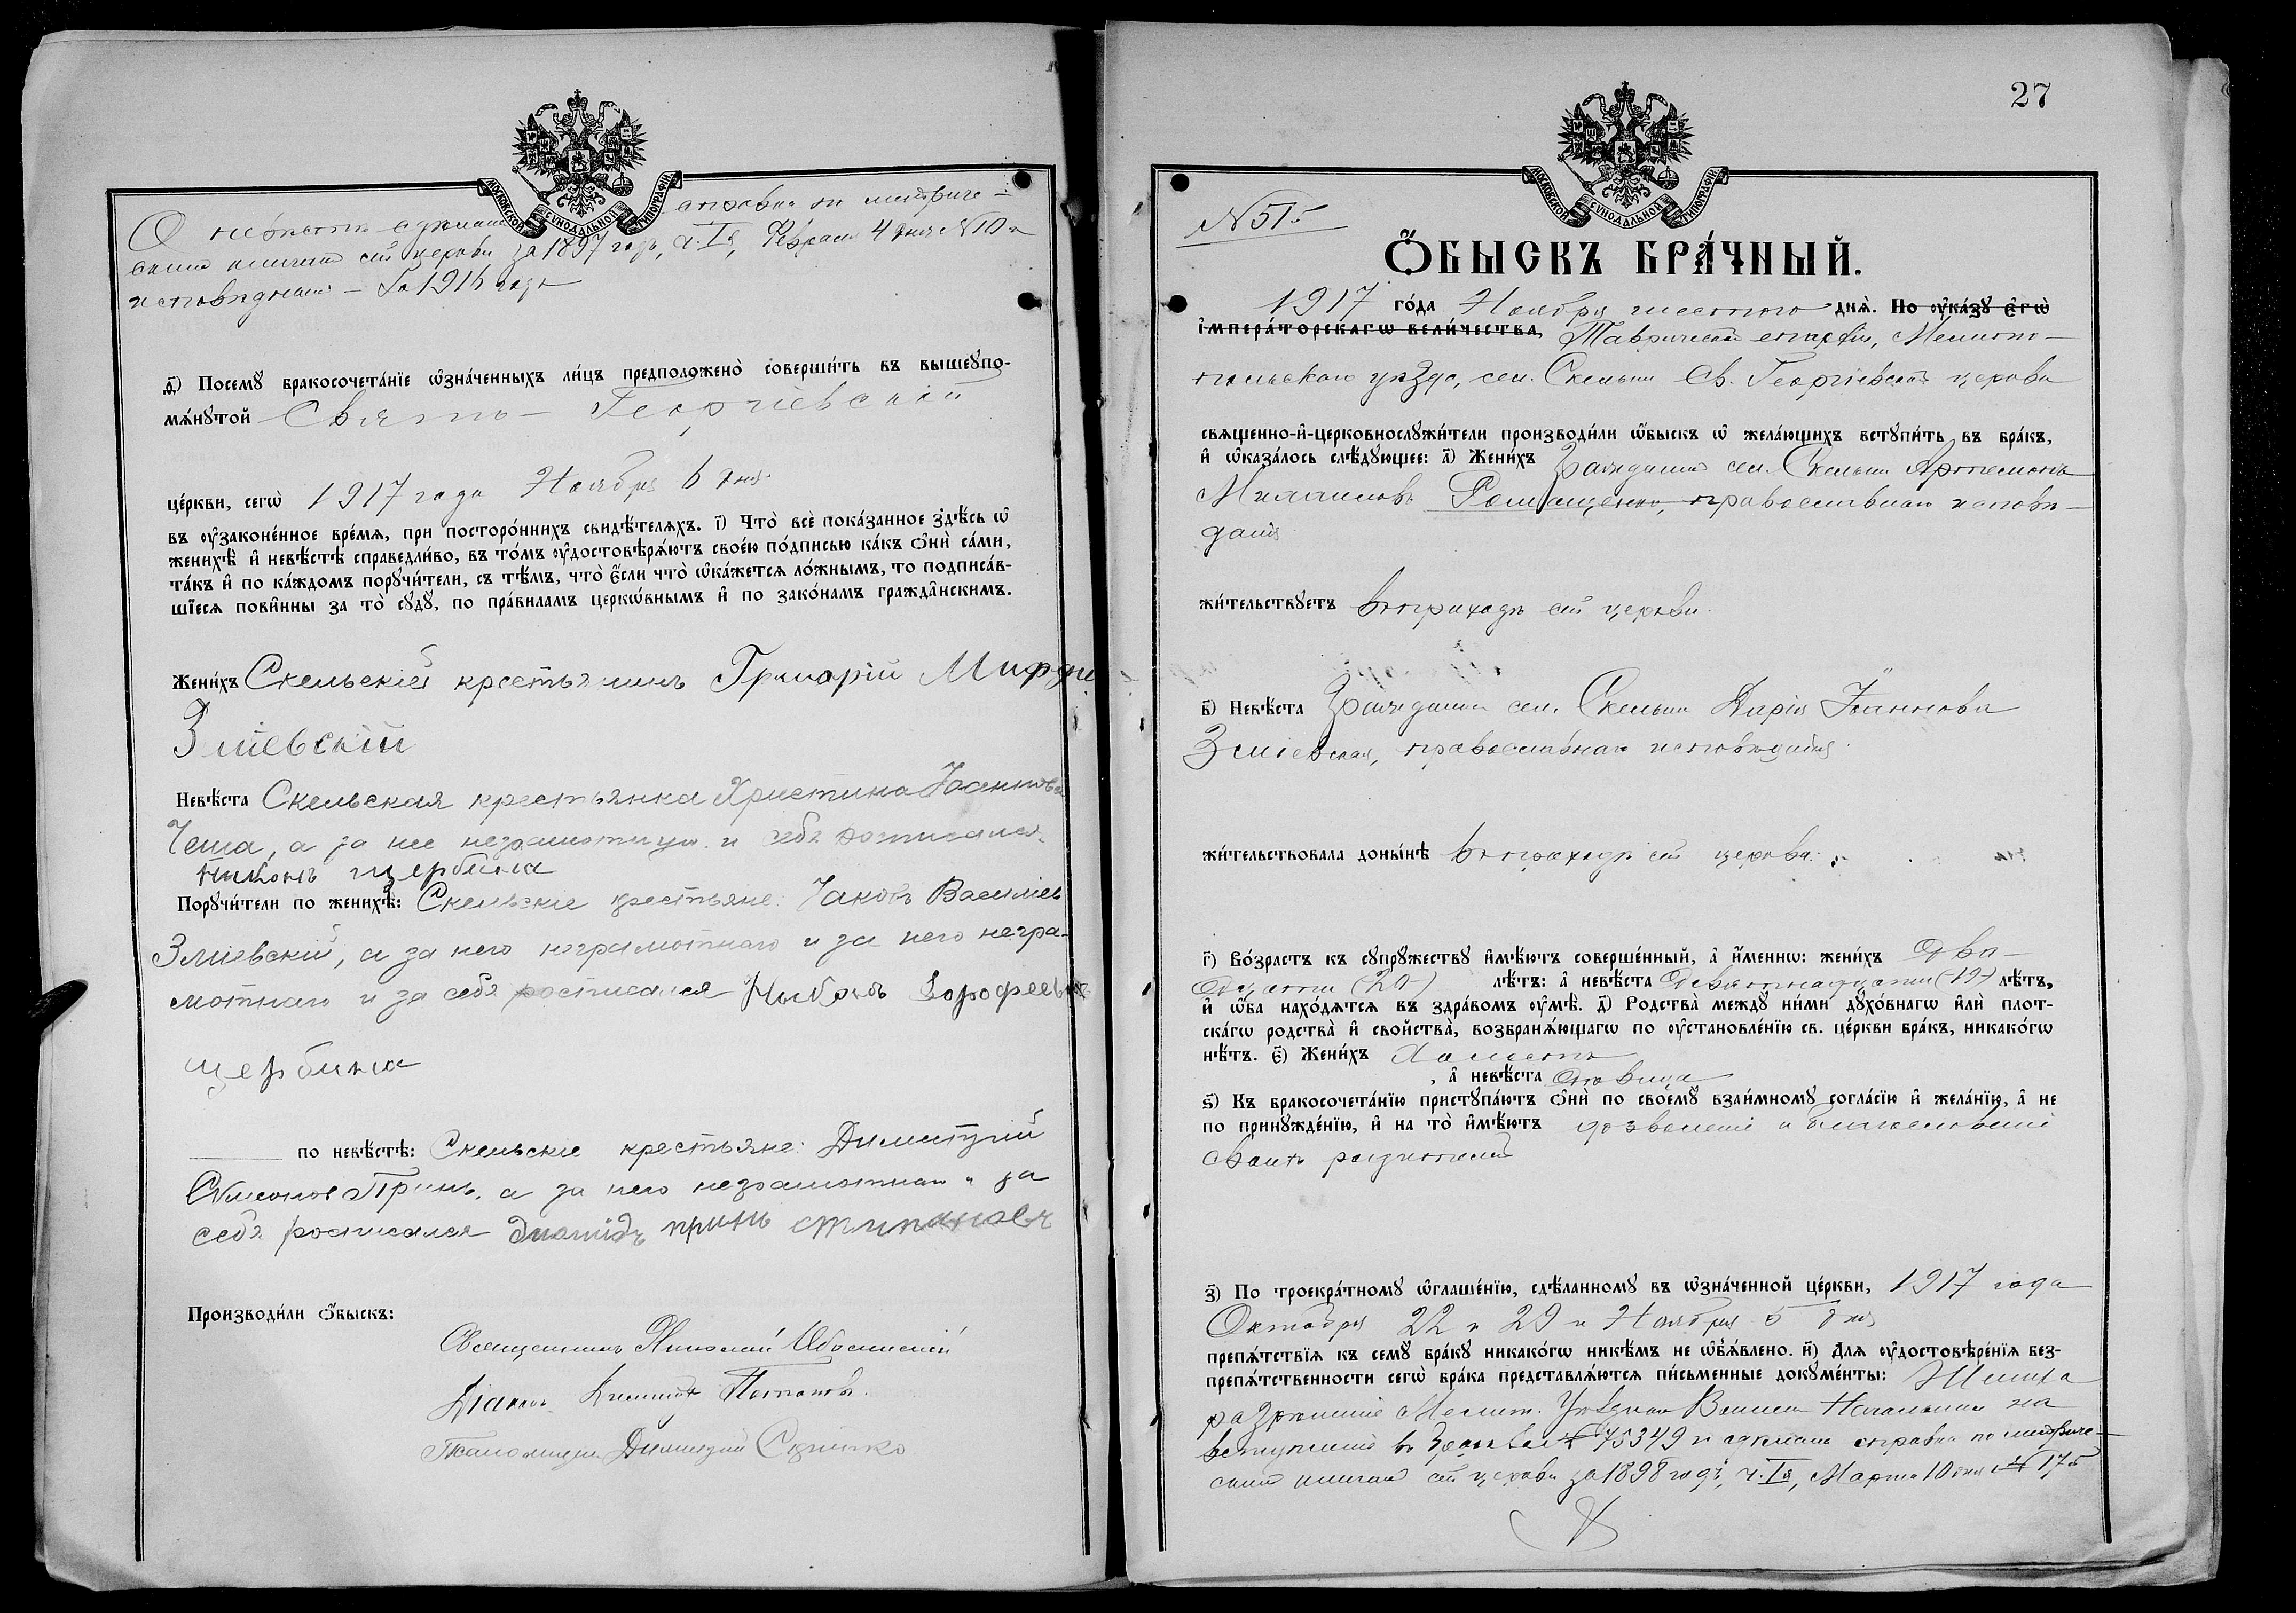 МОСКОВСКОЙ СѴНОДАЛЬНОЙ ТИПОГРАФІИ
О невѣстѣ сдѣлана справка по метриче-
скимъ книгамъ сей церкви за 1897 годъ, ч. Iя, Февраля 4 дня №10 и
исповѣдная – за 1916 годъ
д҃) Посемꙋ̀ бракосочета́нїе ѡ҆зна́ченныхъ ли́цъ предположено̀ соверши́ть въ вышеꙋпо-
мѧ́нꙋтой Свято – Георгіевской
це́ркви, сегѡ̀ 1917 года Ноября 6 дня
въ ᲂу҆зако́не́нное вре́мѧ, при посторо́ннихъ свидѣ́телѧхъ. і҃) Что̀ всѐ пока́занное здѣ́сь ѡ҆
женихѣ̀ и҆ невѣ́стѣ справедли́во, въ то́мъ ᲂу҆достовѣрѧ́ютъ свое́ю по́дписью ка́къ ѻ҆нѝ са́ми,
та́къ и҆ по ка́ждомъ порꙋчи́тели, съ тѣ́мъ, что̀ є҆́сли что̀ ѡ҆ка́жетсѧ ло́жнымъ, то подписа́в-
шїесѧ пови́нны за то̀ сꙋдꙋ̀, по пра́виламъ церкѡ́внымъ и҆ по зако́намъ гражда́нскимъ.
Жени́хъ Скельскій крестьянинъ Григорій
Зміевскій
Невѣ́ста Скельская крестьянка Христина Іоаннова
а за нее неграмотную и себя росписался
Никонъ щербина
Порꙋчи́тели по женихѣ̀: Скельскіе крестьяне: Іаковъ Василіев
Зміевскій, а за него неграмотнаго и за него негра-
мотнаго и за себя росписался Дорофеевъ
щербина
по невѣ́стѣ: Скельскіе крестьяне: Димитрій
Симеонов Принь, а за него неграмотнаго и за
себя росписался принь
Производи́ли ѻ҆́быскъ:
Священникъ Николай
Діаконъ
Псаломщикъ Димитрій
27
МОСКОВСКОЙ СѴНОДАЛЬНОЙ ТИПОГРАФІИ
№515
Ѻ҆́БЫСКЪ БРА́ЧНЫЙ.
1917 го́да Ноября шестого днѧ̀. По ᲂу҆ка́зꙋ є҆гѡ̀
и҆мпера́торскагѡ вели́чества, Таврической епархіи, Мелито-
польскаго уѣзда, сел. Скельки Св. Георгіевской церкви
свѧщенно-и҆-церковнослꙋжи́тели производи́ли ѡ҆́быскъ ѡ҆ жела́ющихъ встꙋпи́ть въ бра́къ,
и҆ ѡ҆каза́лось слѣ́дꙋющее: а҃) Жени́хъ Гражданинъ сел. Скельки Артемонъ
Ромащенко, православнаго исповѣ-
данія
жи́тельствꙋетъ въ приходѣ сей церкви.
в҃) Невѣ́ста Гражданка сел. Скельки Дарія Іоаннова
Зміевская, православнаго исповѣданія.
жи́тельствовала доны́нѣ въ приходѣ сей церкви.
г҃) Во́зрастъ къ сꙋпрꙋ́жествꙋ и҆мѣ́ютъ соверше́нный, а҆ и҆́меннѡ: жени́хъ два-
дцати (20) лѣ́тъ: а҆ невѣ́ста девятнадцати (19) лѣ́тъ,
и҆ ѻ҆́ба нахо́дѧтсѧ въ здра́вомъ ᲂу҆мѣ̀. д҃) Родства̀ междꙋ̀ ни́ми дꙋхо́внагѡ и҆лѝ плот-
ска́гѡ родства̀ и҆ сво́йства̀, возбранѧ́ющагѡ по ᲂу҆становле́нїю св. це́ркви бра́къ, никако́гѡ
нѣ́тъ. є҃) Жени́хъ холостъ
, а҆ невѣ́ста дѣвица
ѕ҃) Къ бракосочета́нїю пристꙋпа́ютъ ѻ҆нѝ по своемꙋ̀ взаи́мномꙋ согла́сїю и҆ жела́нїю, а҆ не
по принꙋжде́нїю, и҆ на то̀ и҆мѣ́ютъ дозволеніе и благословеніе
своихъ родителей
з҃) По троекра́тномꙋ ѡ҆глаше́нїю, сдѣ́ланномꙋ въ ѡ҆зна́ченной це́ркви, 1917 года
Октября 22 и 29 и Ноября 5 дня
препѧ́тствїѧ къ семꙋ̀ бра́кꙋ никако́гѡ никѣ́мъ не ѡ҆б̾ѧ́влено. и҃) Длѧ ᲂу҆достовѣре́нїѧ без-
препѧ́тственности сегѡ̀ бра́ка представлѧ́ютсѧ пи́сьменные докꙋме́нты: Жениха
разрѣшеніе Мелит. Уѣзднаго Воинск. Начальника на
вступленіе въ бракъ за № 75349 и сдѣлана справка по метриче-
скимъ книгамъ сей церкви за 1898 годъ, ч. Iя, Марта 10 дня № 17